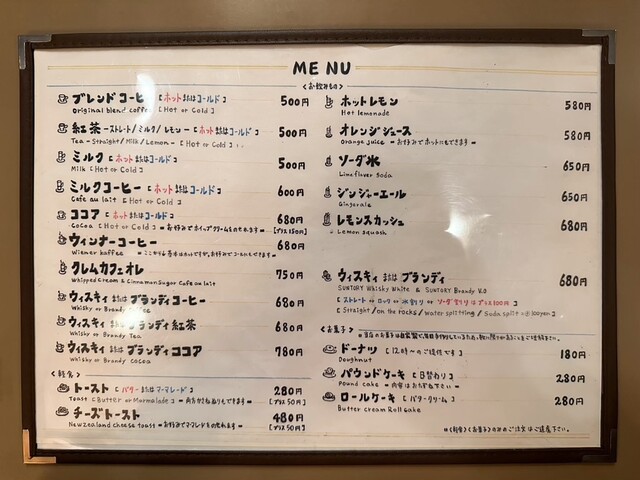 MENU
〈お飲みもの〉
ブレンドコーヒー [ホットまたはコールド] 500円
Original blend coffee [Hot or Cold]
紅茶 -ストレート/ミルク/レモン- [ホットまたはコールド] 500円
Tea -Straight/Milk/Lemon- [Hot or Cold]
ミルク [ホットまたはコールド] 500円
Milk [Hot or Cold]
ミルクコーヒー [ホットまたはコールド] 600円
Cafe au lait [Hot or Cold]
ココア [ホットまたはコールド] 680円
Cocoa [Hot or Cold] =お好みでホイップクリームをのせれます= [プラス150円]
ウィンナーコーヒー 680円
Wiener koffee
クレムカフェオレ 750円
Whipped cream & Cinnamon Sugar Cafe au lait
ウィスキィまたはブランディコーヒー 680円
Whisky or Brandy
ウィスキィまたはブランディ紅茶 680円
Whisky or Brandy Tea
ウィスキィまたはブランディココア 780円
Whisky or Brandy Cocoa
〈軽食〉
トースト [バターまたはマーマレード] 280円
Toast [Butter or Marmalade] =両方がさねぬりもできます= [プラス50円]
チーズトースト 480円
New Zealand cheese toast =お好みでマーマレードをのせれます= [プラス50円]
ホットレモン 580円
Hot lemonade
オレンジジュース 580円
Orange juice =お好みでホットにもできます=
ソーダ水 650円
Lime flaver soda
ジンジャーエール 650円
Gingerale
レモンスカッシュ 680円
Lemon squash
ウィスキィまたはブランディ 680円
SUNTORY Whisky White & SUNTORY Brandy V.O
[ストレート or ロック or 水割り or ソーダ割りはプラス100円]
[Straight/on the rocks/water splitting/Soda split +@100yen]
〈お菓子〉
ドーナツ [12時〜のご提供です] 180円
Doughnut
パウンドケーキ [日替わり] 280円
Pound cake =内容はおたずね下さい=
ロールケーキ [バタークリーム] 280円
Butter cream Roll Cake
※〈軽食〉〈お菓子〉のみのご注文はご遠慮下さい。